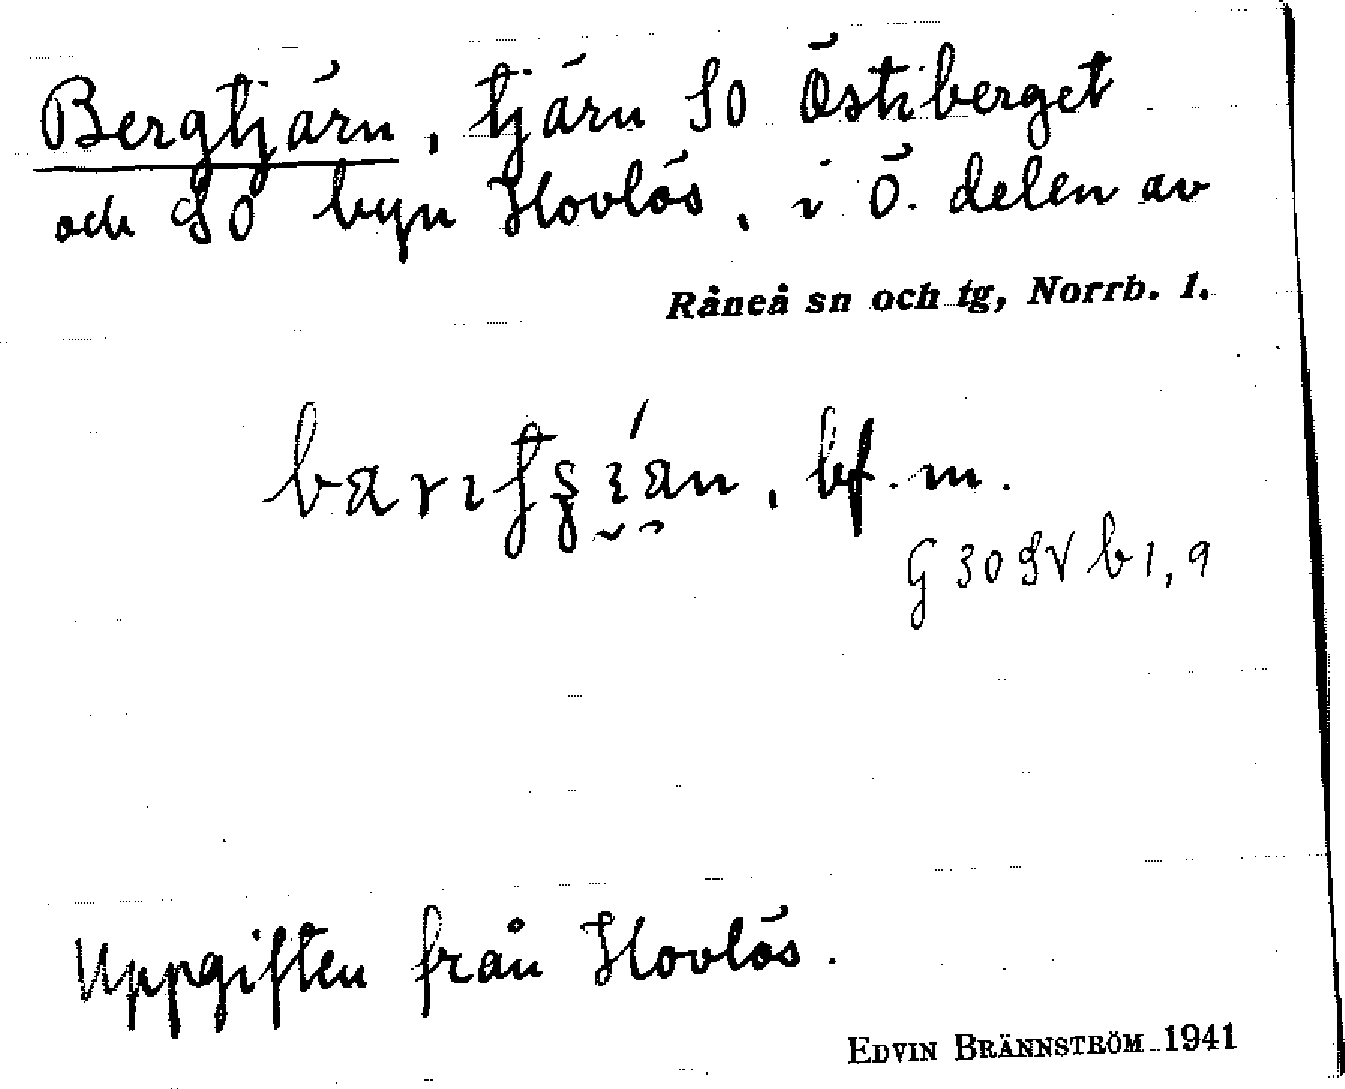 Bergtjärn, tjärn SO Östiberget
och SO byn Hovlös, i Ö. delen av
Råneå sn och tg, Norrb. l.
bf. m.
G 30 SV b 1, 9
Uppgiften från Hovlös.
EDVIN BRÄNNSTRÖM 1941